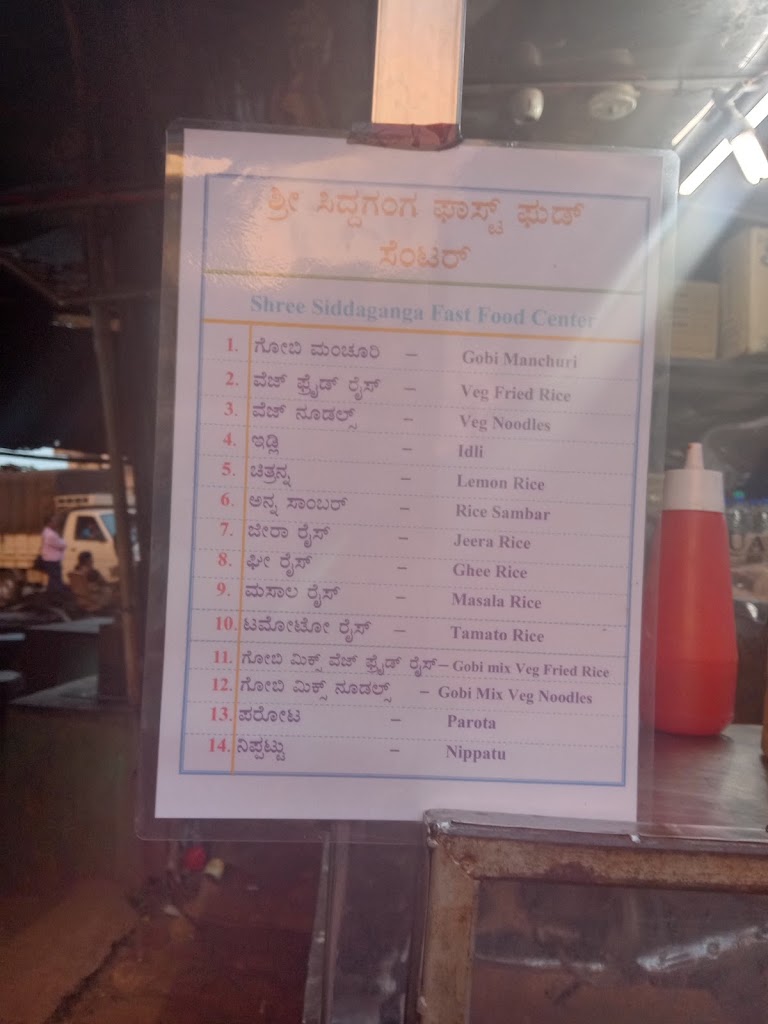 ಶ್ರೀ ಸಿದ್ದಗಂಗ ಫಾಸ್ಟ್ ಫುಡ್
ಸೆಂಟರ್
Shree Siddaganga Fast Food Center
1. ಗೋಬಿ ಮಂಚೂರಿ – Gobi Manchuri
2. ವೆಜ್ ಫ್ರೈಡ್ ರೈಸ್ – Veg Fried Rice
3. ವೆಜ್ ನೂಡಲ್ಸ್ – Veg Noodles
4. ಇಡ್ಲಿ – Idli
5. ಚಿತ್ರನ್ನ – Lemon Rice
6. ಅನ್ನ ಸಾಂಬರ್ – Rice Sambar
7. ಜೀರಾ ರೈಸ್ – Jeera Rice
8. ಘೀ ರೈಸ್ – Ghee Rice
9. ಮಸಾಲ ರೈಸ್ – Masala Rice
10. ಟಮೋಟೋ ರೈಸ್ – Tamato Rice
11. ಗೋಬಿ ಮಿಕ್ಸ್ ವೆಜ್ ಫ್ರೈಡ್ ರೈಸ್– Gobi mix Veg Fried Rice
12. ಗೋಬಿ ಮಿಕ್ಸ್ ನೂಡಲ್ಸ್ – Gobi Mix Veg Noodles
13. ಪರೋಟ – Parota
14. ನಿಪ್ಪಟ್ಟು – Nippatu